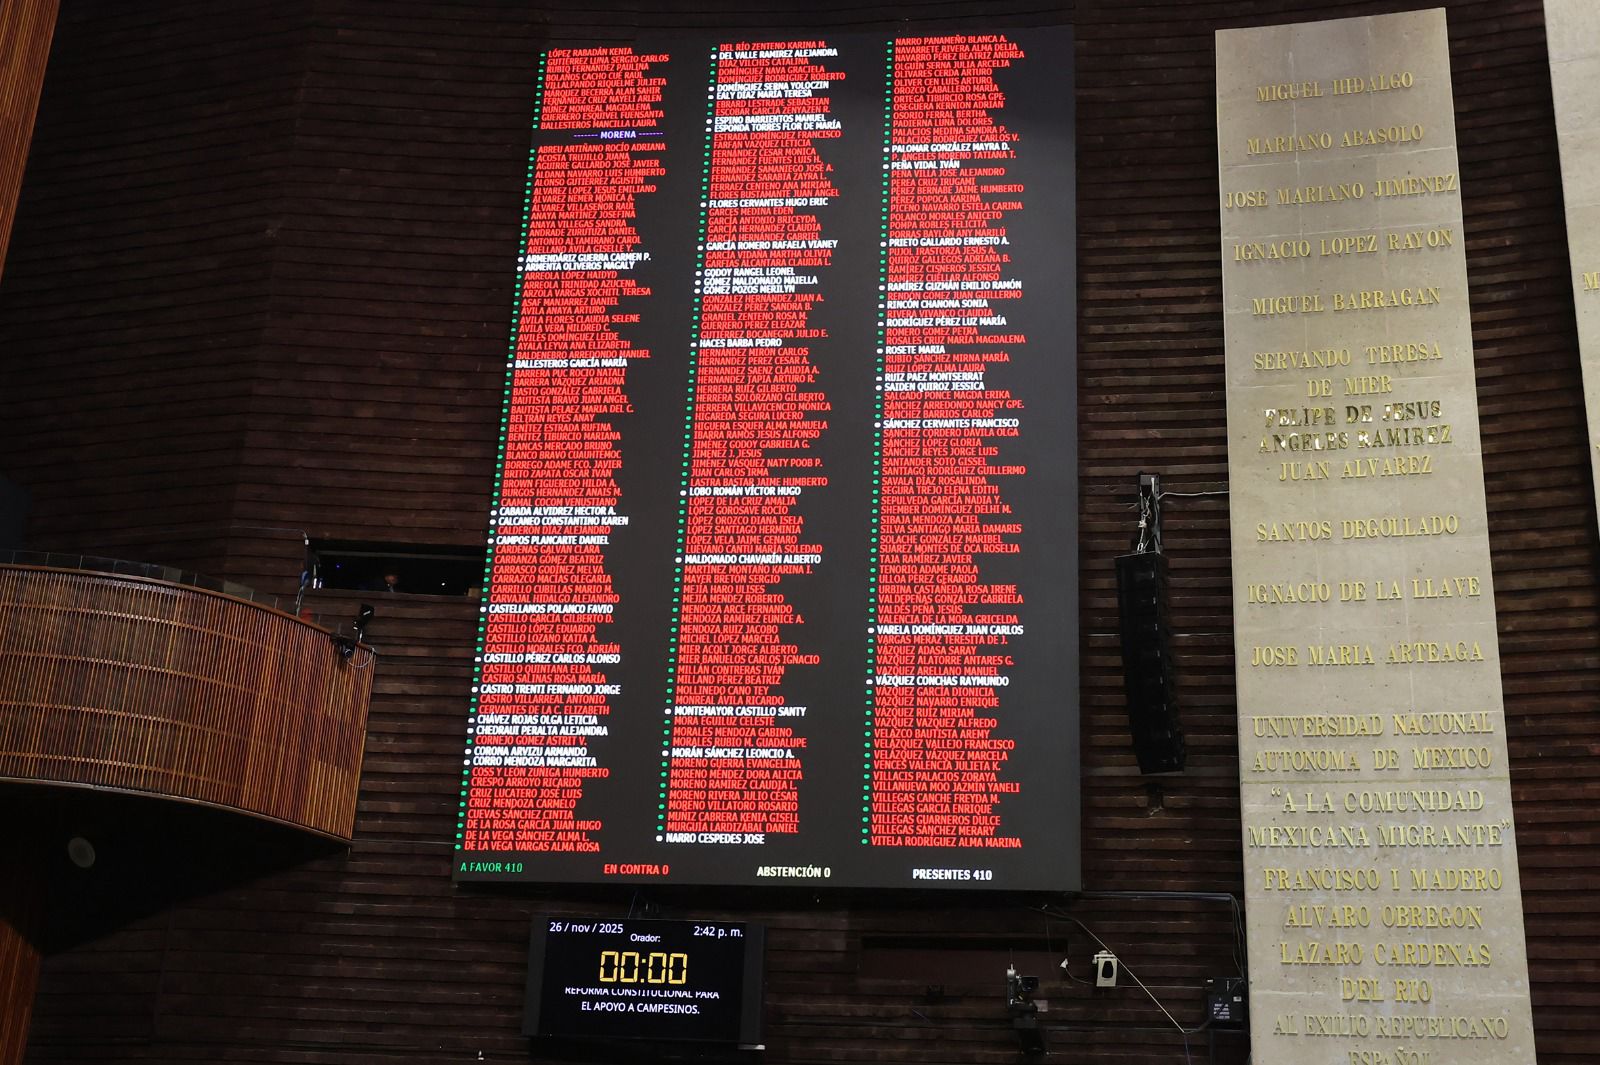 LÓPEZ RABADÁN KENIA
GUTIÉRREZ LUNA SERGIO CARLOS
RUBIO FERNÁNDEZ PAULINA
BOLAÑOS CACHO CUÉ RAÚL
VILLALPANDO RIQUELME JULIETA
MÁRQUEZ BECERRA ALAN SAHIR
FERNÁNDEZ CRUZ NAYELI ARLEN
NÚÑEZ MONREAL MAGDALENA
GUERRERO ESQUIVEL FUENSANTA
BALLESTEROS MANCILLA LAURA
------- MORENA -------
ABREU ARTIÑANO ROCÍO ADRIANA
ACOSTA TRUJILLO JUANA
AGUIRRE GALLARDO JOSÉ JAVIER
ALDANA NAVARRO LUIS HUMBERTO
ALONSO GUTIÉRREZ AGUSTÍN
ÁLVAREZ LÓPEZ JESÚS EMILIANO
ÁLVAREZ NEMER MÓNICA A.
ÁLVAREZ VILLASEÑOR RAÚL
ANAYA MARTÍNEZ JOSEFINA
ANAYA VILLEGAS SANDRA
ANDRADE ZURUTUZA DANIEL
ANTONIO ALTAMIRANO CAROL
ARELLANO ÁVILA GISELLE Y.
ARMENDÁRIZ GUERRA CARMEN P.
ARMENTA OLIVEROS MAGALY
ARREOLA LÓPEZ HAIDYD
ARREOLA TRINIDAD AZUCENA
ARZOLA VARGAS XÓCHITL TERESA
ASAF MANJARREZ DANIEL
ÁVILA ANAYA ARTURO
ÁVILA FLORES CLAUDIA SELENE
ÁVILA VERA MILDRED C.
AVILÉS DOMÍNGUEZ LEIDE
AYALA LEYVA ANA ELIZABETH
BALDENEBRO ARREDONDO MANUEL
BALLESTEROS GARCÍA MARÍA
BARRERA PUC ROCÍO NATALÍ
BARRERA VÁZQUEZ ARIADNA
BASTO GONZÁLEZ GABRIELA
BAUTISTA BRAVO JUAN ÁNGEL
BAUTISTA PELÁEZ MARÍA DEL C.
BELTRÁN REYES ANAY
BENÍTEZ ESTRADA RUFINA
BENÍTEZ TIBURCIO MARIANA
BLANCAS MERCADO BRUNO
BLANCO BRAVO CUAUHTÉMOC
BORREGO ADAME FCO. JAVIER
BRITO ZAPATA ÓSCAR IVÁN
BROWN FIGUEREDO HILDA A.
BURGOS HERNÁNDEZ ANAIS M.
CAAMAL COCOM VENUSTIANO
CABADA ALVÍDREZ HÉCTOR A.
CALCÁNEO CONSTANTINO KAREN
CALDERÓN DÍAZ ALEJANDRO
CAMPOS PLANCARTE DANIEL
CÁRDENAS GALVÁN CLARA
CARRANZA GÓMEZ BEATRIZ
CARRASCO GODÍNEZ MELVA
CARRAZCO MACÍAS OLEGARIA
CARRILLO CUBILLAS MARIO M.
CARVAJAL HIDALGO ALEJANDRO
CASTELLANOS POLANCO FAVIO
CASTILLO GARCÍA GILBERTO D.
CASTILLO LÓPEZ EDUARDO
CASTILLO LOZANO KATIA A.
CASTILLO MORALES FCO. ADRIÁN
CASTILLO PÉREZ CARLOS ALONSO
CASTILLO QUINTANA ELDA
CASTRO SALINAS ROSA MARÍA
CASTRO TRENTI FERNANDO JORGE
CASTRO VILLARREAL ANTONIO
CERVANTES DE LA C. ELIZABETH
CHÁVEZ ROJAS OLGA LETICIA
CHEDRAUI PERALTA ALEJANDRA
CORNEJO GÓMEZ ASTRIT V.
CORONA ARVIZU ARMANDO
CORRO MENDOZA MARGARITA
COSS Y LEÓN ZÚÑIGA HUMBERTO
CRESPO ARROYO RICARDO
CRUZ LUCATERO JOSÉ LUIS
CRUZ MENDOZA CARMELO
CUEVAS SÁNCHEZ CINTIA
DE LA ROSA GARCÍA JUAN HUGO
DE LA VEGA SÁNCHEZ ALMA L.
DE LA VEGA VARGAS ALMA ROSA
DEL RÍO ZENTENO KARINA M.
DEL VALLE RAMÍREZ ALEJANDRA
DÍAZ VILCHIS CATALINA
DOMÍNGUEZ NAVA GRACIELA
DOMÍNGUEZ RODRÍGUEZ ROBERTO
DOMÍNGUEZ SERNA YOLOCZIN
EALY DÍAZ MARÍA TERESA
EBRARD LESTRADE SEBASTIÁN
ESCOBAR GARCÍA ZENYAZEN R.
ESPINO BARRIENTOS MANUEL
ESPONDA TORRES FLOR DE MARÍA
ESTRADA DOMÍNGUEZ FRANCISCO
FARFÁN VÁZQUEZ LETICIA
FERNÁNDEZ CÉSAR MÓNICA
FERNÁNDEZ FUENTES LUIS H.
FERNÁNDEZ SAMANIEGO JOSÉ A.
FERNÁNDEZ SARABIA ZAYRA L.
FERRÁEZ CENTENO ANA MIRIAM
FLORES BUSTAMANTE JUAN ÁNGEL
FLORES CERVANTES HUGO ERIC
GARCÉS MEDINA EDÉN
GARCÍA ANTONIO BRICEYDA
GARCÍA HERNÁNDEZ CLAUDIA
GARCÍA HERNÁNDEZ GABRIEL
GARCÍA ROMERO RAFAELA VIANEY
GARCÍA VIDAÑA MARTHA OLIVIA
GARFIAS ALCÁNTARA CLAUDIA L.
GODOY RANGEL LEONEL
GÓMEZ MALDONADO MAIELLA
GÓMEZ POZOS MERILYN
GONZÁLEZ HERNÁNDEZ JUAN A.
GONZÁLEZ PÉREZ SANDRA B.
GRANIEL ZENTENO ROSA M.
GUERRERO PÉREZ ELEAZAR
GUTIÉRREZ BOCANEGRA JULIO E.
HACES BARBA PEDRO
HERNÁNDEZ MIRÓN CARLOS
HERNÁNDEZ PÉREZ CÉSAR A.
HERNÁNDEZ SÁENZ CLAUDIA A.
HERNÁNDEZ TAPIA ARTURO R.
HERRERA RUÍZ GILBERTO
HERRERA SOLÓRZANO GILBERTO
HERRERA VILLAVICENCIO MÓNICA
HIGAREDA SEGURA LUCERO
HIGUERA ESQUER ALMA MANUELA
IBARRA RAMOS JESÚS ALFONSO
JIMÉNEZ GODOY GABRIELA G.
JIMÉNEZ J. JESÚS
JIMÉNEZ VÁSQUEZ NATY POOB P.
JUAN CARLOS IRMA
LASTRA BASTAR JAIME HUMBERTO
LOBO ROMÁN VÍCTOR HUGO
LÓPEZ DE LA CRUZ AMALIA
LÓPEZ GOROSAVE ROCÍO
LÓPEZ OROZCO DIANA ISELA
LÓPEZ SANTIAGO HERMINIA
LÓPEZ VELA JAIME GENARO
LUÉVANO CANTÚ MARÍA SOLEDAD
MALDONADO CHAVARÍN ALBERTO
MARTÍNEZ MONTAÑO KARINA I.
MAYER BRETÓN SERGIO
MEJÍA HARO ULISES
MEJÍA MÉNDEZ ROBERTO
MENDOZA ARCE FERNANDO
MENDOZA RAMÍREZ EUNICE A.
MENDOZA RUÍZ JACOBO
MICHEL LÓPEZ MARCELA
MIER ACOLT JORGE ALBERTO
MIER BAÑUELOS CARLOS IGNACIO
MILLÁN CONTRERAS IVÁN
MILLAND PÉREZ BEATRIZ
MOLLINEDO CANO TEY
MONREAL ÁVILA RICARDO
MONTEMAYOR CASTILLO SANTY
MORA EGUILUZ CELESTE
MORALES MENDOZA GABINO
MORALES RUBIO M. GUADALUPE
MORÁN SÁNCHEZ LEONCIO A.
MORENO GUERRA EVANGELINA
MORENO MÉNDEZ DORA ALICIA
MORENO RAMÍREZ CLAUDIA L.
MORENO RIVERA JULIO CÉSAR
MORENO VILLATORO ROSARIO
MUÑIZ CABRERA KENIA GISELL
MURGUÍA LARDIZÁBAL DANIEL
NARRO CÉSPEDES JOSÉ
NARRO PANAMEÑO BLANCA A.
NAVARRETE RIVERA ALMA DELIA
NAVARRO PÉREZ BEATRIZ ANDREA
OLGUÍN SERNA JULIA ARCELIA
OLIVARES CERDA ARTURO
OLIVER CEN LUIS ARTURO
OROZCO CABALLERO MARÍA
ORTEGA TIBURCIO ROSA GPE.
OSEGUERA KERNION ADRIÁN
OSORIO FERRAL BERTHA
PADIERNA LUNA DOLORES
PALACIOS MEDINA SANDRA P.
PALACIOS RODRÍGUEZ CARLOS V.
PALOMAR GONZÁLEZ MAYRA D.
P. ÁNGELES MORENO TATIANA T.
PEÑA VIDAL IVÁN
PEÑA VILLA JOSÉ ALEJANDRO
PEREA CRUZ IRUGAMI
PÉREZ BERNABE JAIME HUMBERTO
PÉREZ POPOCA KARINA
PICENO NAVARRO ESTELA CARINA
POLANCO MORALES ANICETO
POMPA ROBLES FELICITA
PORRAS BAYLÓN ANY MARILÚ
PRIETO GALLARDO ERNESTO A.
PUJOL IRASTORZA JESÚS A.
QUIROZ GALLEGOS ADRIANA B.
RAMÍREZ CISNEROS JESSICA
RAMÍREZ CUÉLLAR ALFONSO
RAMÍREZ GUZMÁN EMILIO RAMÓN
RENDÓN GÓMEZ JUAN GUILLERMO
RINCÓN CHANONA SONIA
RIVERA VIVANCO CLAUDIA
RODRÍGUEZ PÉREZ LUZ MARÍA
ROMERO GÓMEZ PETRA
ROSALES CRUZ MARÍA MAGDALENA
ROSETE MARIA
RUBIO SÁNCHEZ MIRNA MARÍA
RUIZ LÓPEZ ALMA LAURA
RUIZ PÁEZ MONTSERRAT
SAIDEN QUIROZ JESSICA
SALGADO PONCE MAGDA ERIKA
SÁNCHEZ ARREDONDO NANCY GPE.
SÁNCHEZ BARRIOS CARLOS
SÁNCHEZ CERVANTES FRANCISCO
SÁNCHEZ CORDERO DÁVILA OLGA
SÁNCHEZ LÓPEZ GLORIA
SÁNCHEZ REYES JORGE LUIS
SANTANDER SOTO GISSEL
SANTIAGO RODRÍGUEZ GUILLERMO
SAVALA DÍAZ ROSALINDA
SEGURA TREJO ELENA EDITH
SEPÚLVEDA GARCÍA NADIA Y.
SHEMBER DOMÍNGUEZ DELHI M.
SIBAJA MENDOZA ACIEL
SILVA SANTIAGO MARÍA DAMARIS
SOLACHE GONZÁLEZ MARIBEL
SUÁREZ MONTES DE OCA ROSELIA
TAJA RAMÍREZ JAVIER
TENORIO ADAME PAOLA
ULLOA PÉREZ GERARDO
URBINA CASTAÑEDA ROSA IRENE
VALDEPEÑAS GONZÁLEZ GABRIELA
VALDÉS PEÑA JESÚS
VALENCIA DE LA MORA GRICELDA
VARELA DOMÍNGUEZ JUAN CARLOS
VARGAS MERAZ TERESITA DE J.
VÁZQUEZ ADASA SARAY
VÁZQUEZ ALATORRE ANTARES G.
VÁZQUEZ ARELLANO MANUEL
VÁZQUEZ CONCHAS RAYMUNDO
VÁZQUEZ GARCÍA DIONICIA
VÁZQUEZ NAVARRO ENRIQUE
VÁZQUEZ RUÍZ MIRIAM
VÁZQUEZ VÁZQUEZ ALFREDO
VELAZCO BAUTISTA AREMY
VELÁZQUEZ VALLEJO FRANCISCO
VELÁZQUEZ VÁZQUEZ MARCELA
VENCES VALENCIA JULIETA K.
VILLACIS PALACIOS ZORAYA
VILLANUEVA MOO JAZMÍN YANELI
VILLEGAS CANCHÉ FREYDA M.
VILLEGAS GARCÍA ENRIQUE
VILLEGAS GUARNEROS DULCE
VILLEGAS SÁNCHEZ MERARY
VITELA RODRÍGUEZ ALMA MARINA
A FAVOR 410
EN CONTRA 0
ABSTENCIÓN 0
PRESENTES 410
26 / nov / 2025
2:42 p. m.
Orador:
00:00
REFORMA CONSTITUCIONAL PARA
EL APOYO A CAMPESINOS.
MIGUEL HIDALGO
MARIANO ABASOLO
JOSE MARIANO JIMENEZ
IGNACIO LOPEZ RAYON
MIGUEL BARRAGAN
SERVANDO TERESA
DE MIER
FELIPE DE JESUS
ANGELES RAMIREZ
JUAN ALVAREZ
SANTOS DEGOLLADO
IGNACIO DE LA LLAVE
JOSE MARIA ARTEAGA
UNIVERSIDAD NACIONAL
AUTONOMA DE MEXICO
"A LA COMUNIDAD
MEXICANA MIGRANTE"
FRANCISCO I MADERO
ALVARO OBREGON
LAZARO CARDENAS
DEL RIO
AL EXILIO REPUBLICANO
ESPAÑOL